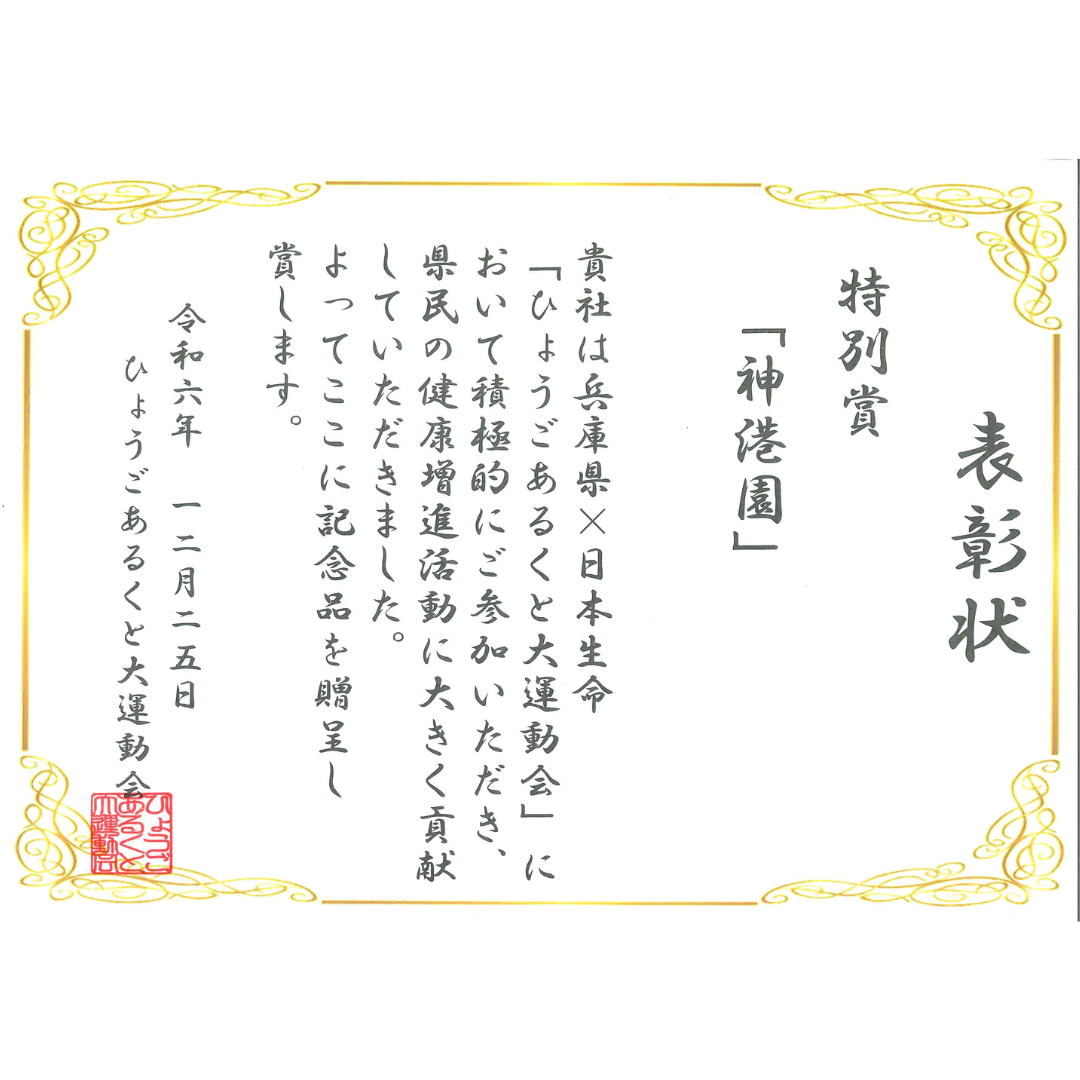 表彰状
特別賞
「神港園」
貴社は兵庫県×日本生命
「ひょうごあるくと大運動会」に
おいて積極的にご参加いただき、
県民の健康増進活動に大きく貢献
していただきました。
よってここに記念品を贈呈し
賞します。
令和六年 一二月二五日
ひょうごあるくと大運動会
ひょうご
あるくと
大運動会